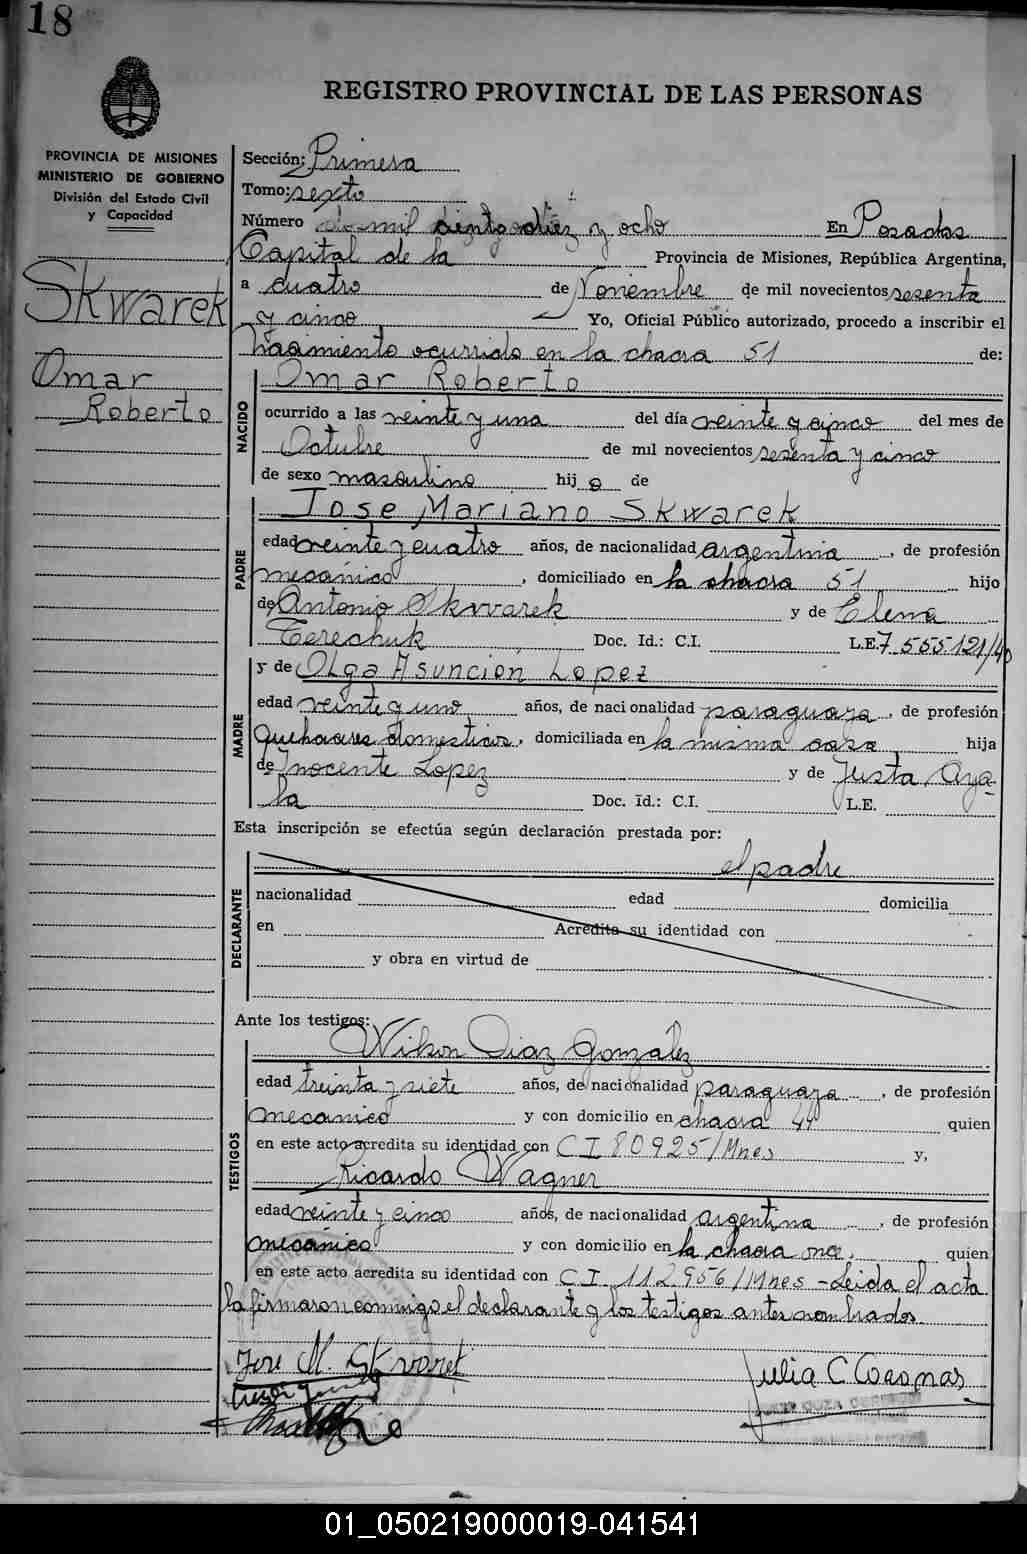 18
REGISTRO PROVINCIAL DE LAS PERSONAS
PROVINCIA DE MISIONES
MINISTERIO DE GOBIERNO
División del Estado Civil
y Capacidad
Skwarek
Omar
Roberto
Sección: Primera
Tomo: sexto
Número dos mil ciento diez y ocho En Posadas
Capital de la Provincia de Misiones, República Argentina,
a cuatro de Noviembre de mil novecientos sesenta
y cinco Yo, Oficial Público autorizado, procedo a inscribir el
nacimiento ocurrido en la chacra 51 de:
NACIDO
Omar Roberto
ocurrido a las veinte y una del día veinte y cinco del mes de
Octubre de mil novecientos sesenta y cinco
de sexo masculino hij o de
PADRE
Jose Mariano Skwarek
edad veinte y cuatro años, de nacionalidad argentina, de profesión
mecanico, domiciliado en la chacra 51 hijo
de Antonio Skwarek y de Elena
Terechuk Doc. Id.: C.I. L.E. 7.555.121/40
MADRE
y de Olga Asunción Lopez
edad veinte y uno años, de nacionalidad paraguaya, de profesión
quehaceres domesticos, domiciliada en la misma casa hija
de Inocente Lopez y de Justa Aya-
la Doc. Id.: C.I. L.E.
Esta inscripción se efectúa según declaración prestada por:
DECLARANTE
el padre
nacionalidad edad domicilia
en Acredita su identidad con
y obra en virtud de
Ante los testigos:
TESTIGOS
Wilson Diaz González
edad treinta y siete años, de nacionalidad paraguaya, de profesión
mecanico y con domicilio en chacra 44 quien
en este acto acredita su identidad con C I 80925/Mnes y,
Ricardo Wagner
edad veinte y cinco años, de nacionalidad argentina, de profesión
mecanico y con domicilio en la chacra once, quien
en este acto acredita su identidad con C.I. 112.956/Mnes - Leida el acta
la firmaron conmigo el declarante y los testigos antes nombrados
Jose M. Skwarek
Julia C Coronas
01_050219000019-041541